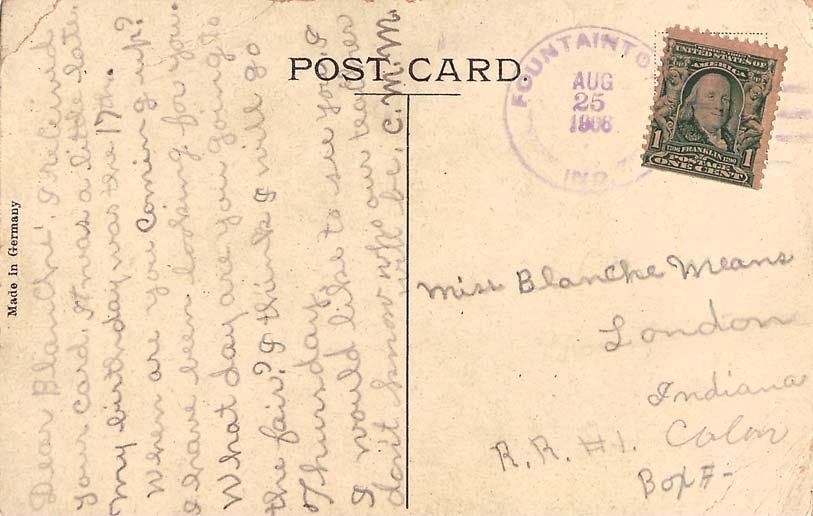 POST CARD.
Made in Germany
Dear Blanche, I received
your card, it was a little late.
My birthday was the 17th.
When are you coming up?
I have been looking for you.
What day are you going to
the fair? I think I will go
Thursday
I would like to see you. I
don't know who our teacher
will be. C. M. M.
FOUNTAINTO
AUG
25
1908
IND.
UNITED STATES OF
AMERICA
1 FRANKLIN 1
1706 1790
POSTAGE
ONE CENT
Miss Blanche Means
London
Indiana
R. R. #1.
Box #-